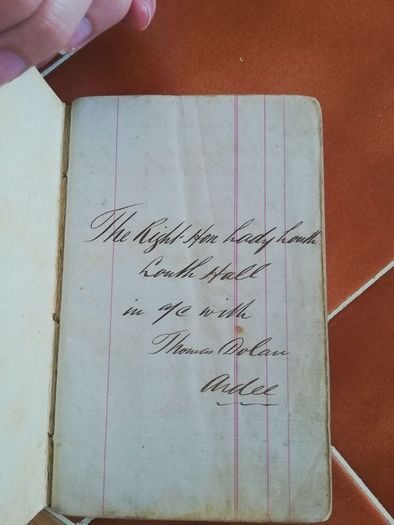 The Right Hon Lady Louth
Louth Hall
in a/c with
Thomas Dolan
Ardee